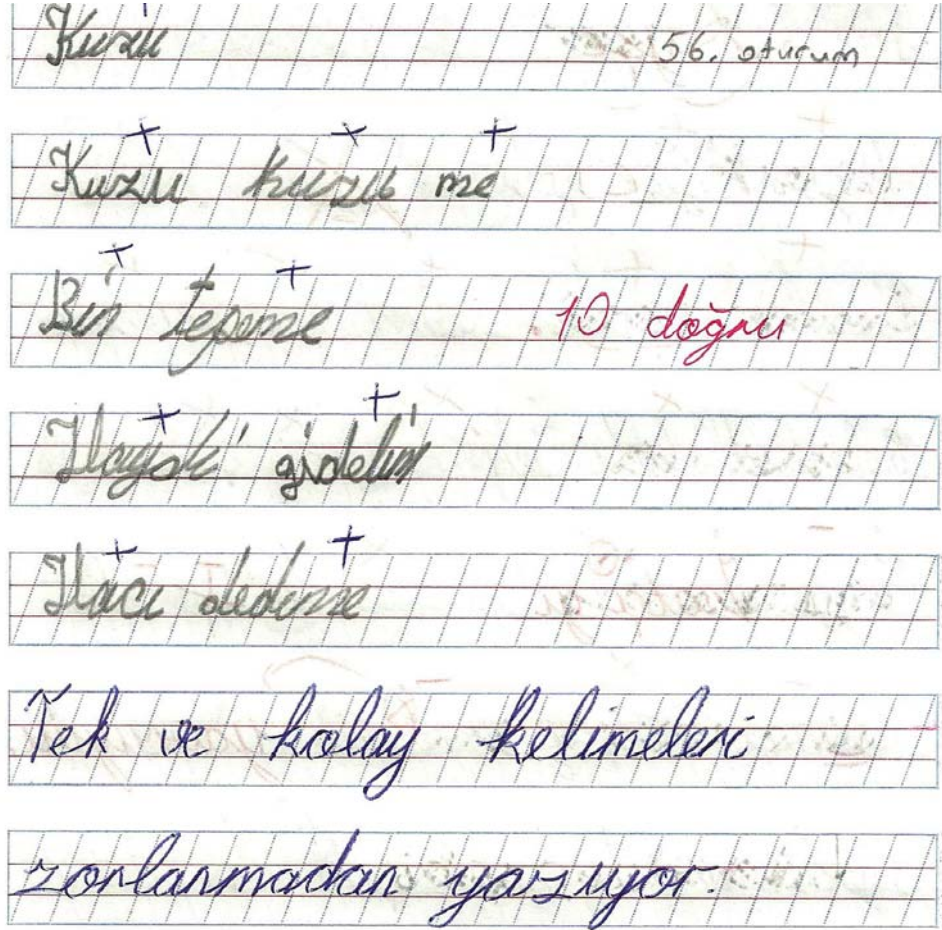 Kuzu 56. oturum
Kuzu kuzu me
Bin tepeme 10 doğru
Haydi gidelim
Hacı dedeme
Tek ve kolay kelimeleri
zorlanmadan yazıyor.